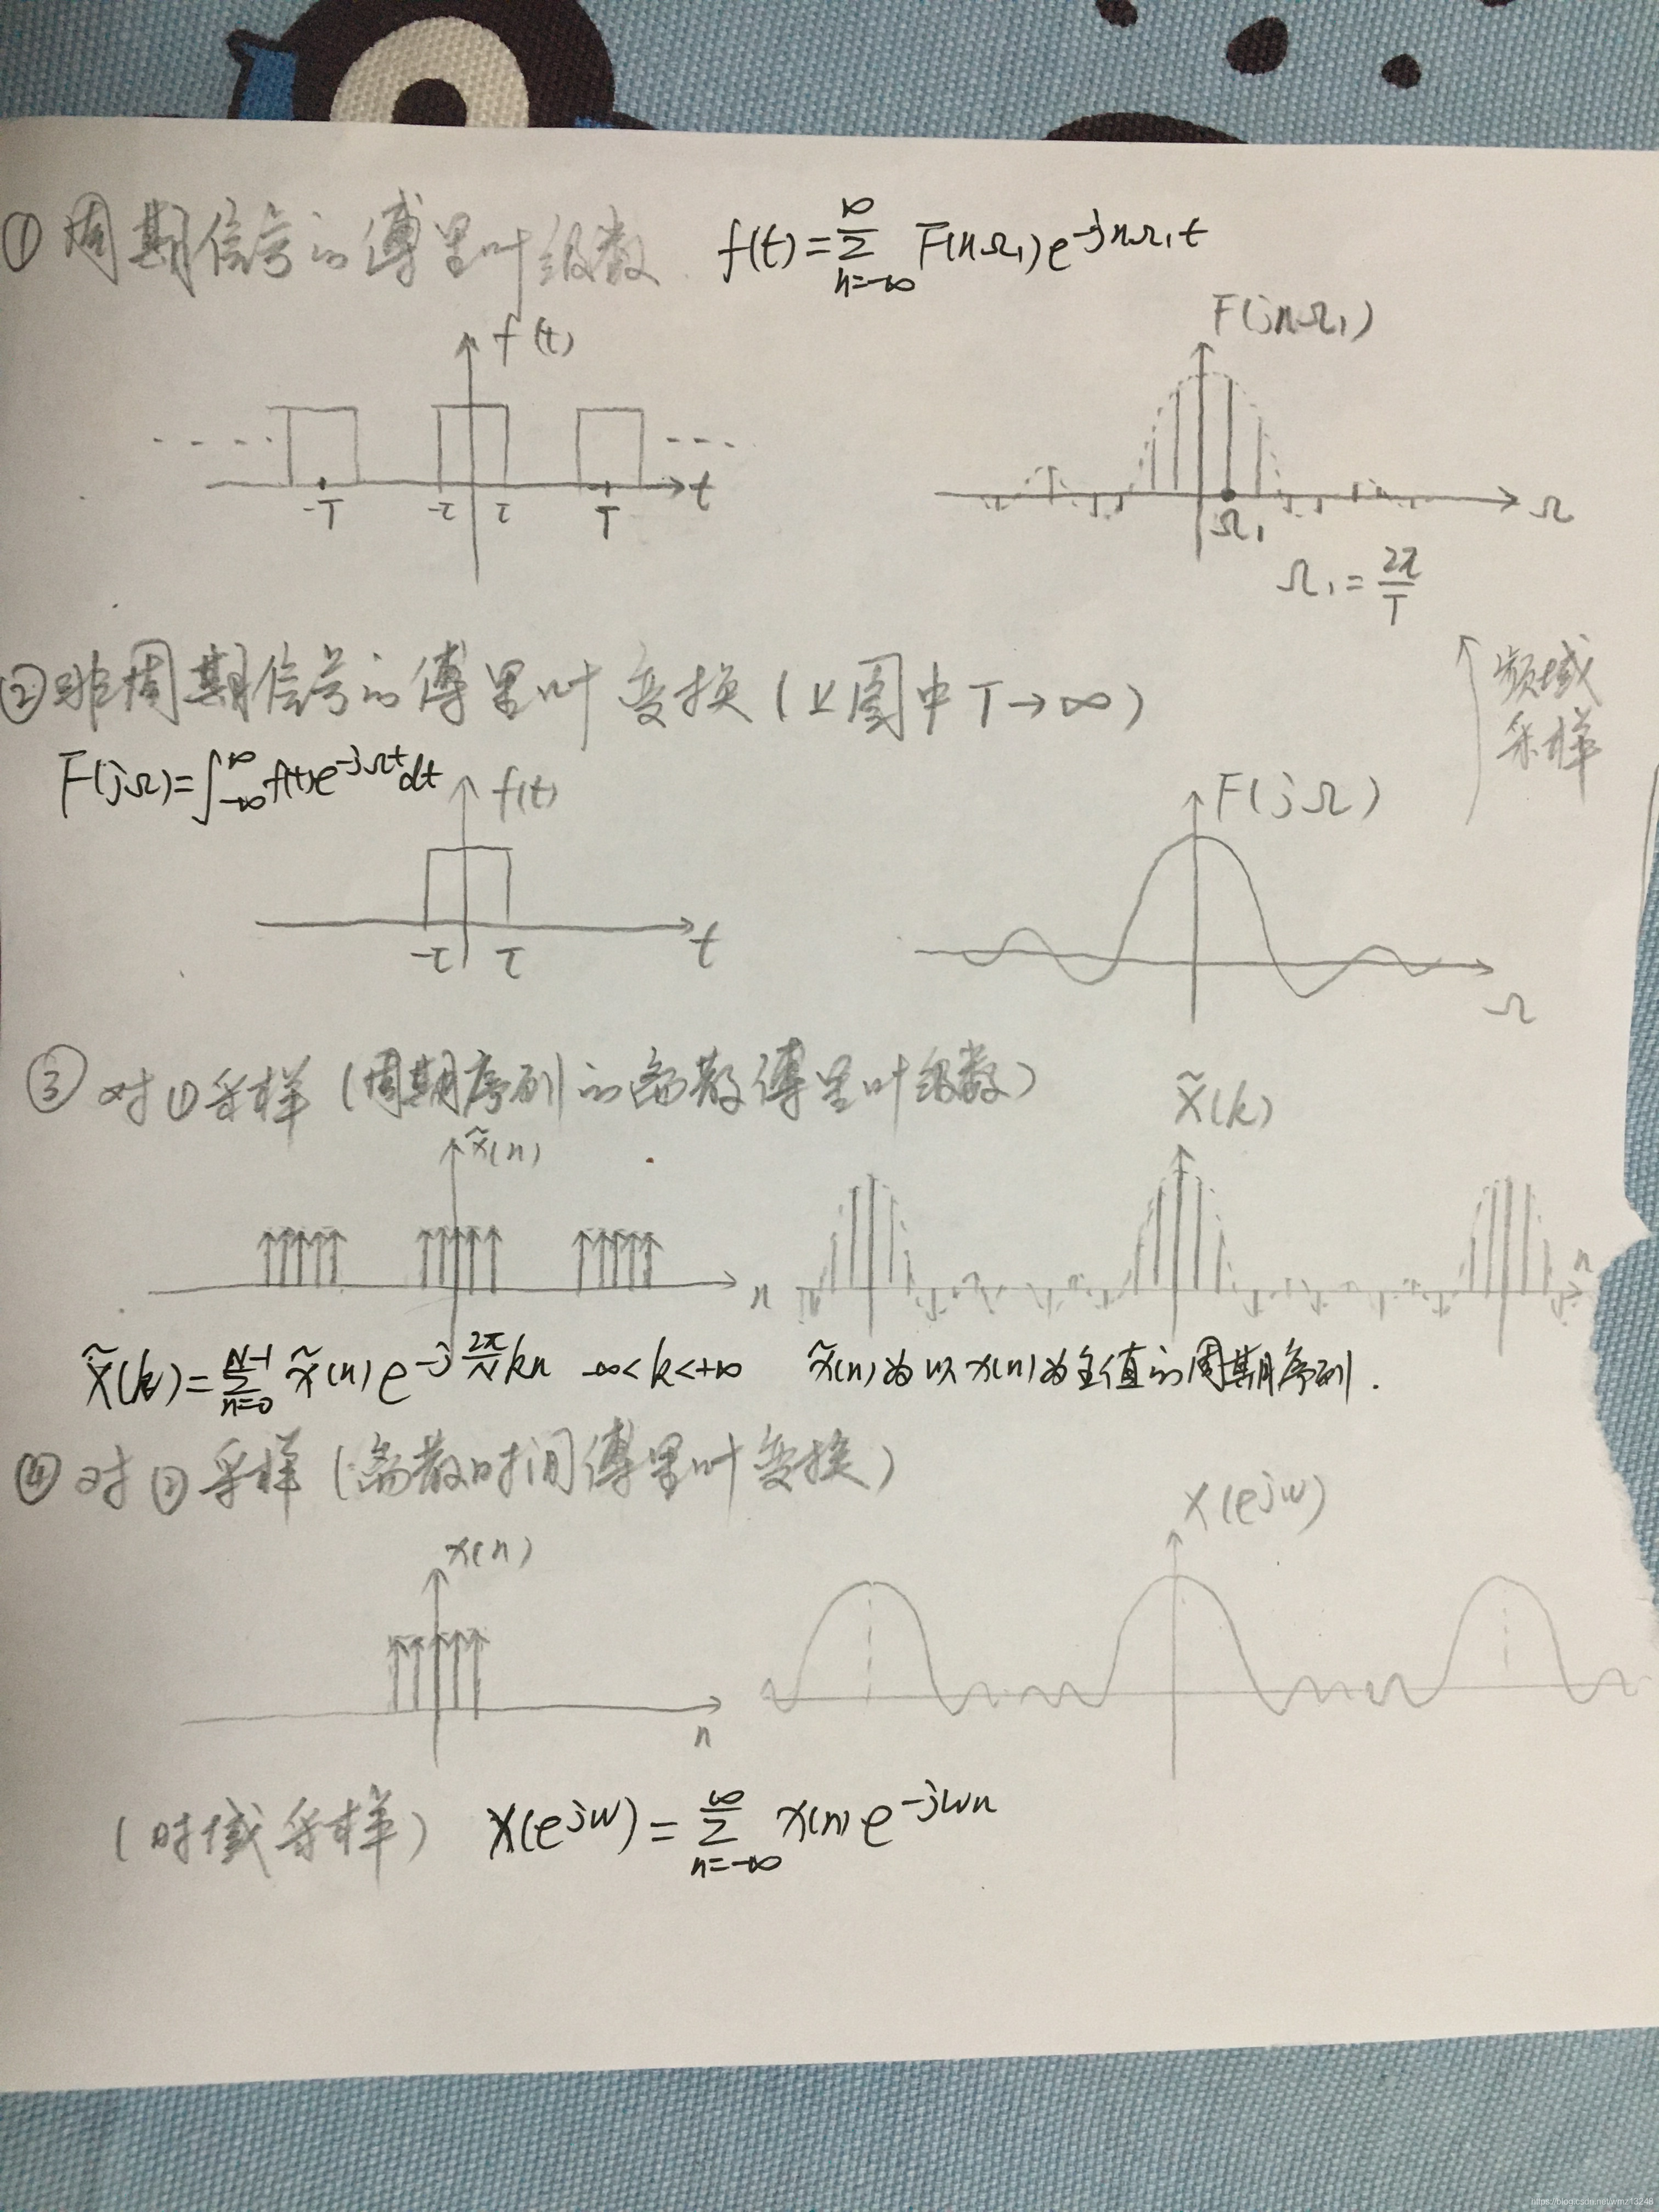 ①周期信号的傅里叶级数 f(t)=∑_{n=-∞}^{∞} F(nΩ₁)e^{-jnΩ₁t}
f(t)
F(jnΩ₁)
-T -τ τ T t
Ω₁ Ω
Ω₁=2π/T
②非周期信号的傅里叶变换(上图中T→∞)
频域
采样
F(jΩ)=∫_{-∞}^{∞}f(t)e^{-jΩt}dt
f(t)
F(jΩ)
-τ τ t
Ω
③对①采样(周期序列的离散傅里叶级数)
x̃(n)
X̃(k)
n
n
X̃(k)=∑_{n=0}^{N-1} x̃(n)e^{-j2π/N kn} -∞<k<+∞ x̃(n)为以x(n)为主值的周期序列.
④对②采样(离散时间傅里叶变换)
x(n)
X(e^{jw})
n
(时域采样) X(e^{jw})=∑_{n=-∞}^{∞} x(n)e^{-jwn}
https://blog.csdn.net/wmz13248